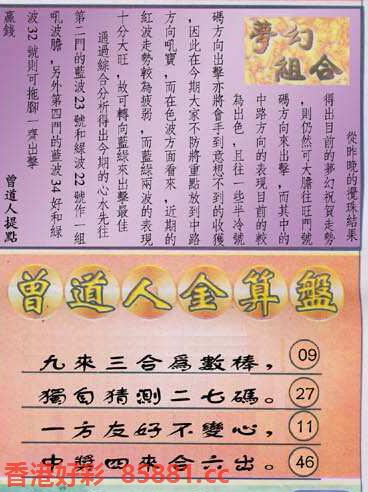 夢幻
組合
從昨晚的攪珠結果
得出目前的夢幻祝賀走勢
，則仍然可大膽往旺門號
碼方向來出擊，而其中的
中路方向的表現目前的較
為出色，且往一些半冷號
碼方向出擊亦將會手到意想不到的收獲
，因此在今期大家不防將重點放到中路
方向吼寶，而在色波方面看來，近期的
紅波走勢較為疲弱，而藍綠兩波的表現
十分大旺，故可轉向藍綠來出擊最佳
通過綜合分析得出今期的心水先往
第二門的藍波23號和綠波22號作一組
吼波膽，另外第四門的藍波34好和綠
波32號則可拖腳一齊出擊
贏錢
曾道人提點
曾道人全算盤
九來三合為數棒， 09
獨自猜測二七碼。 27
一方友好不變心， 11
中獎四來合六出。 46
香港好彩 85881.cc